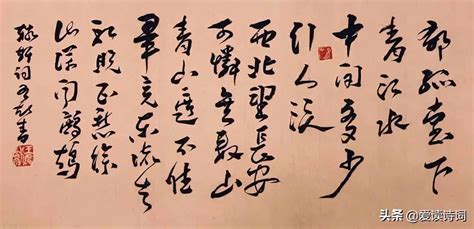 郁孤台下
清江水
中间多少
行人泪
西北望长安
可怜无数山
青山遮不住
毕竟东流去
江晚正愁余
山深闻鹧鸪
稼轩词 书
头条 @爱读诗词